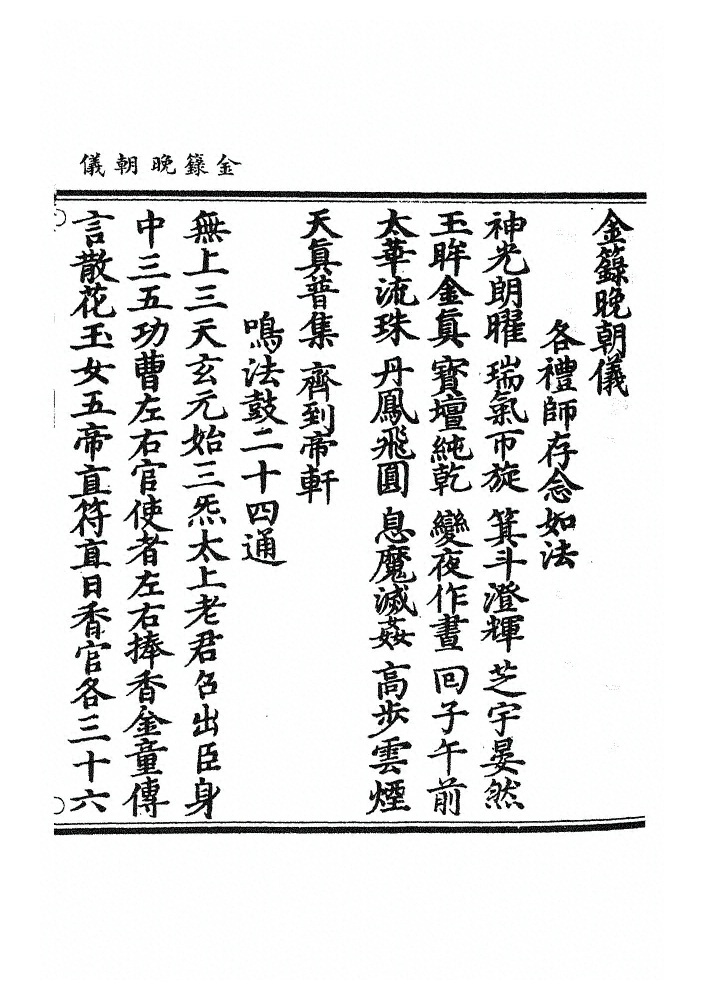 金籙晚朝儀
金籙晚朝儀
各禮師存念如法
神光朗曜 瑞氣帀旋 箕斗澄輝 芝宇晏然
玉眸金真 寶壇純乾 變夜作晝 回子午前
太華流珠 丹鳳飛圓 息魔滅姦 高步雲煙
天真普集 齊到帝軒
鳴法鼓二十四通
無上三天玄元始三炁太上老君召出臣身
中三五功曹左右官使者左右捧香金童傳
言散花玉女五帝直符直日香官各三十六